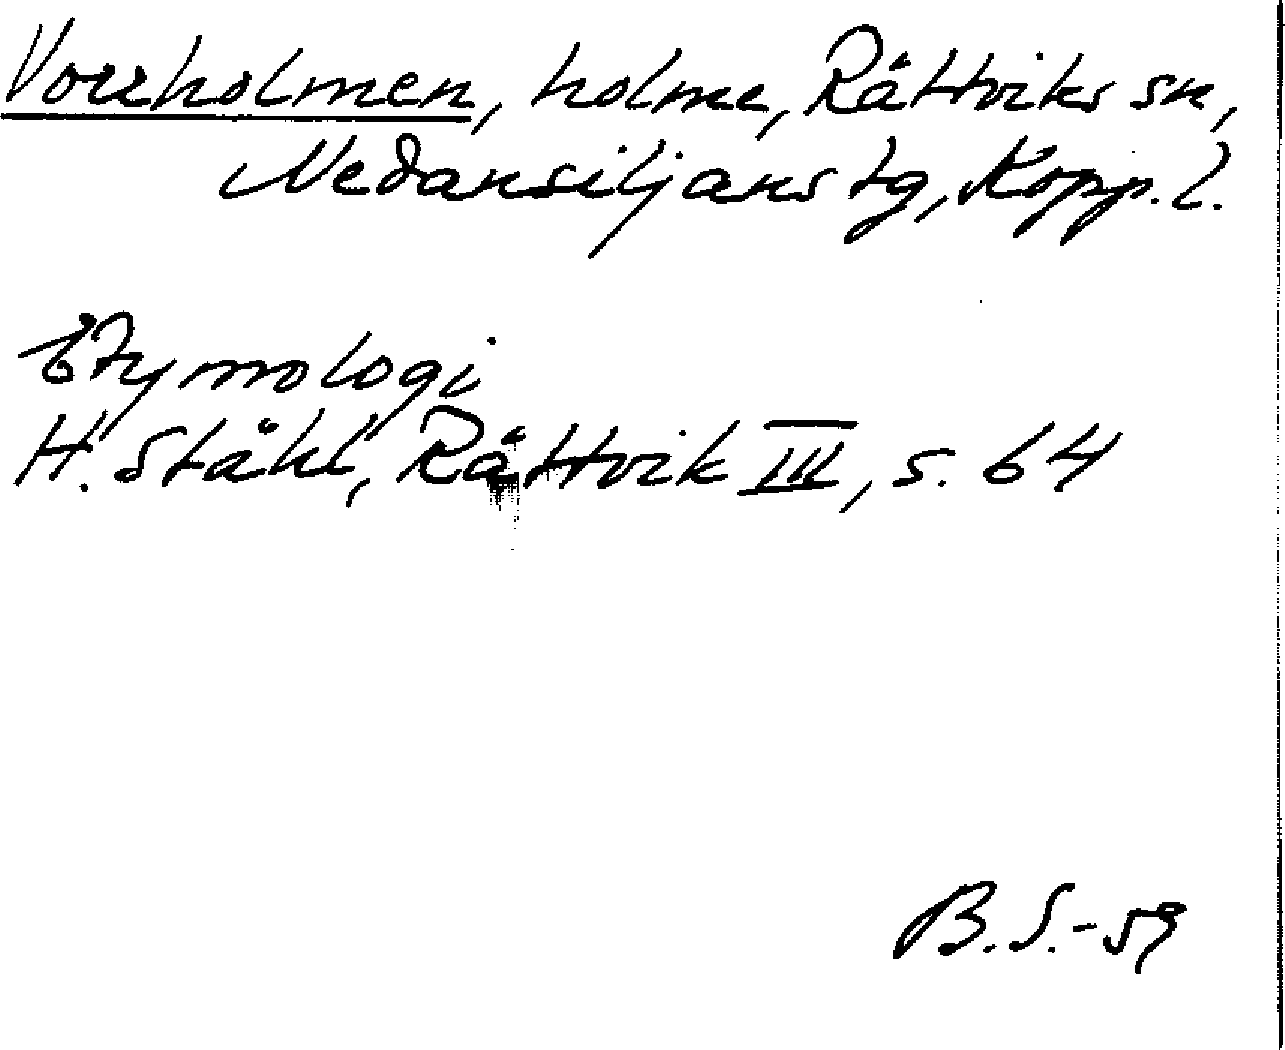 Vorrholmen, holme, Rättviks sn,
Nedansiljans tg, Kopp. l.
Etymologi
H. Ståhl, Rättvik III, s. 64
B.S.-59